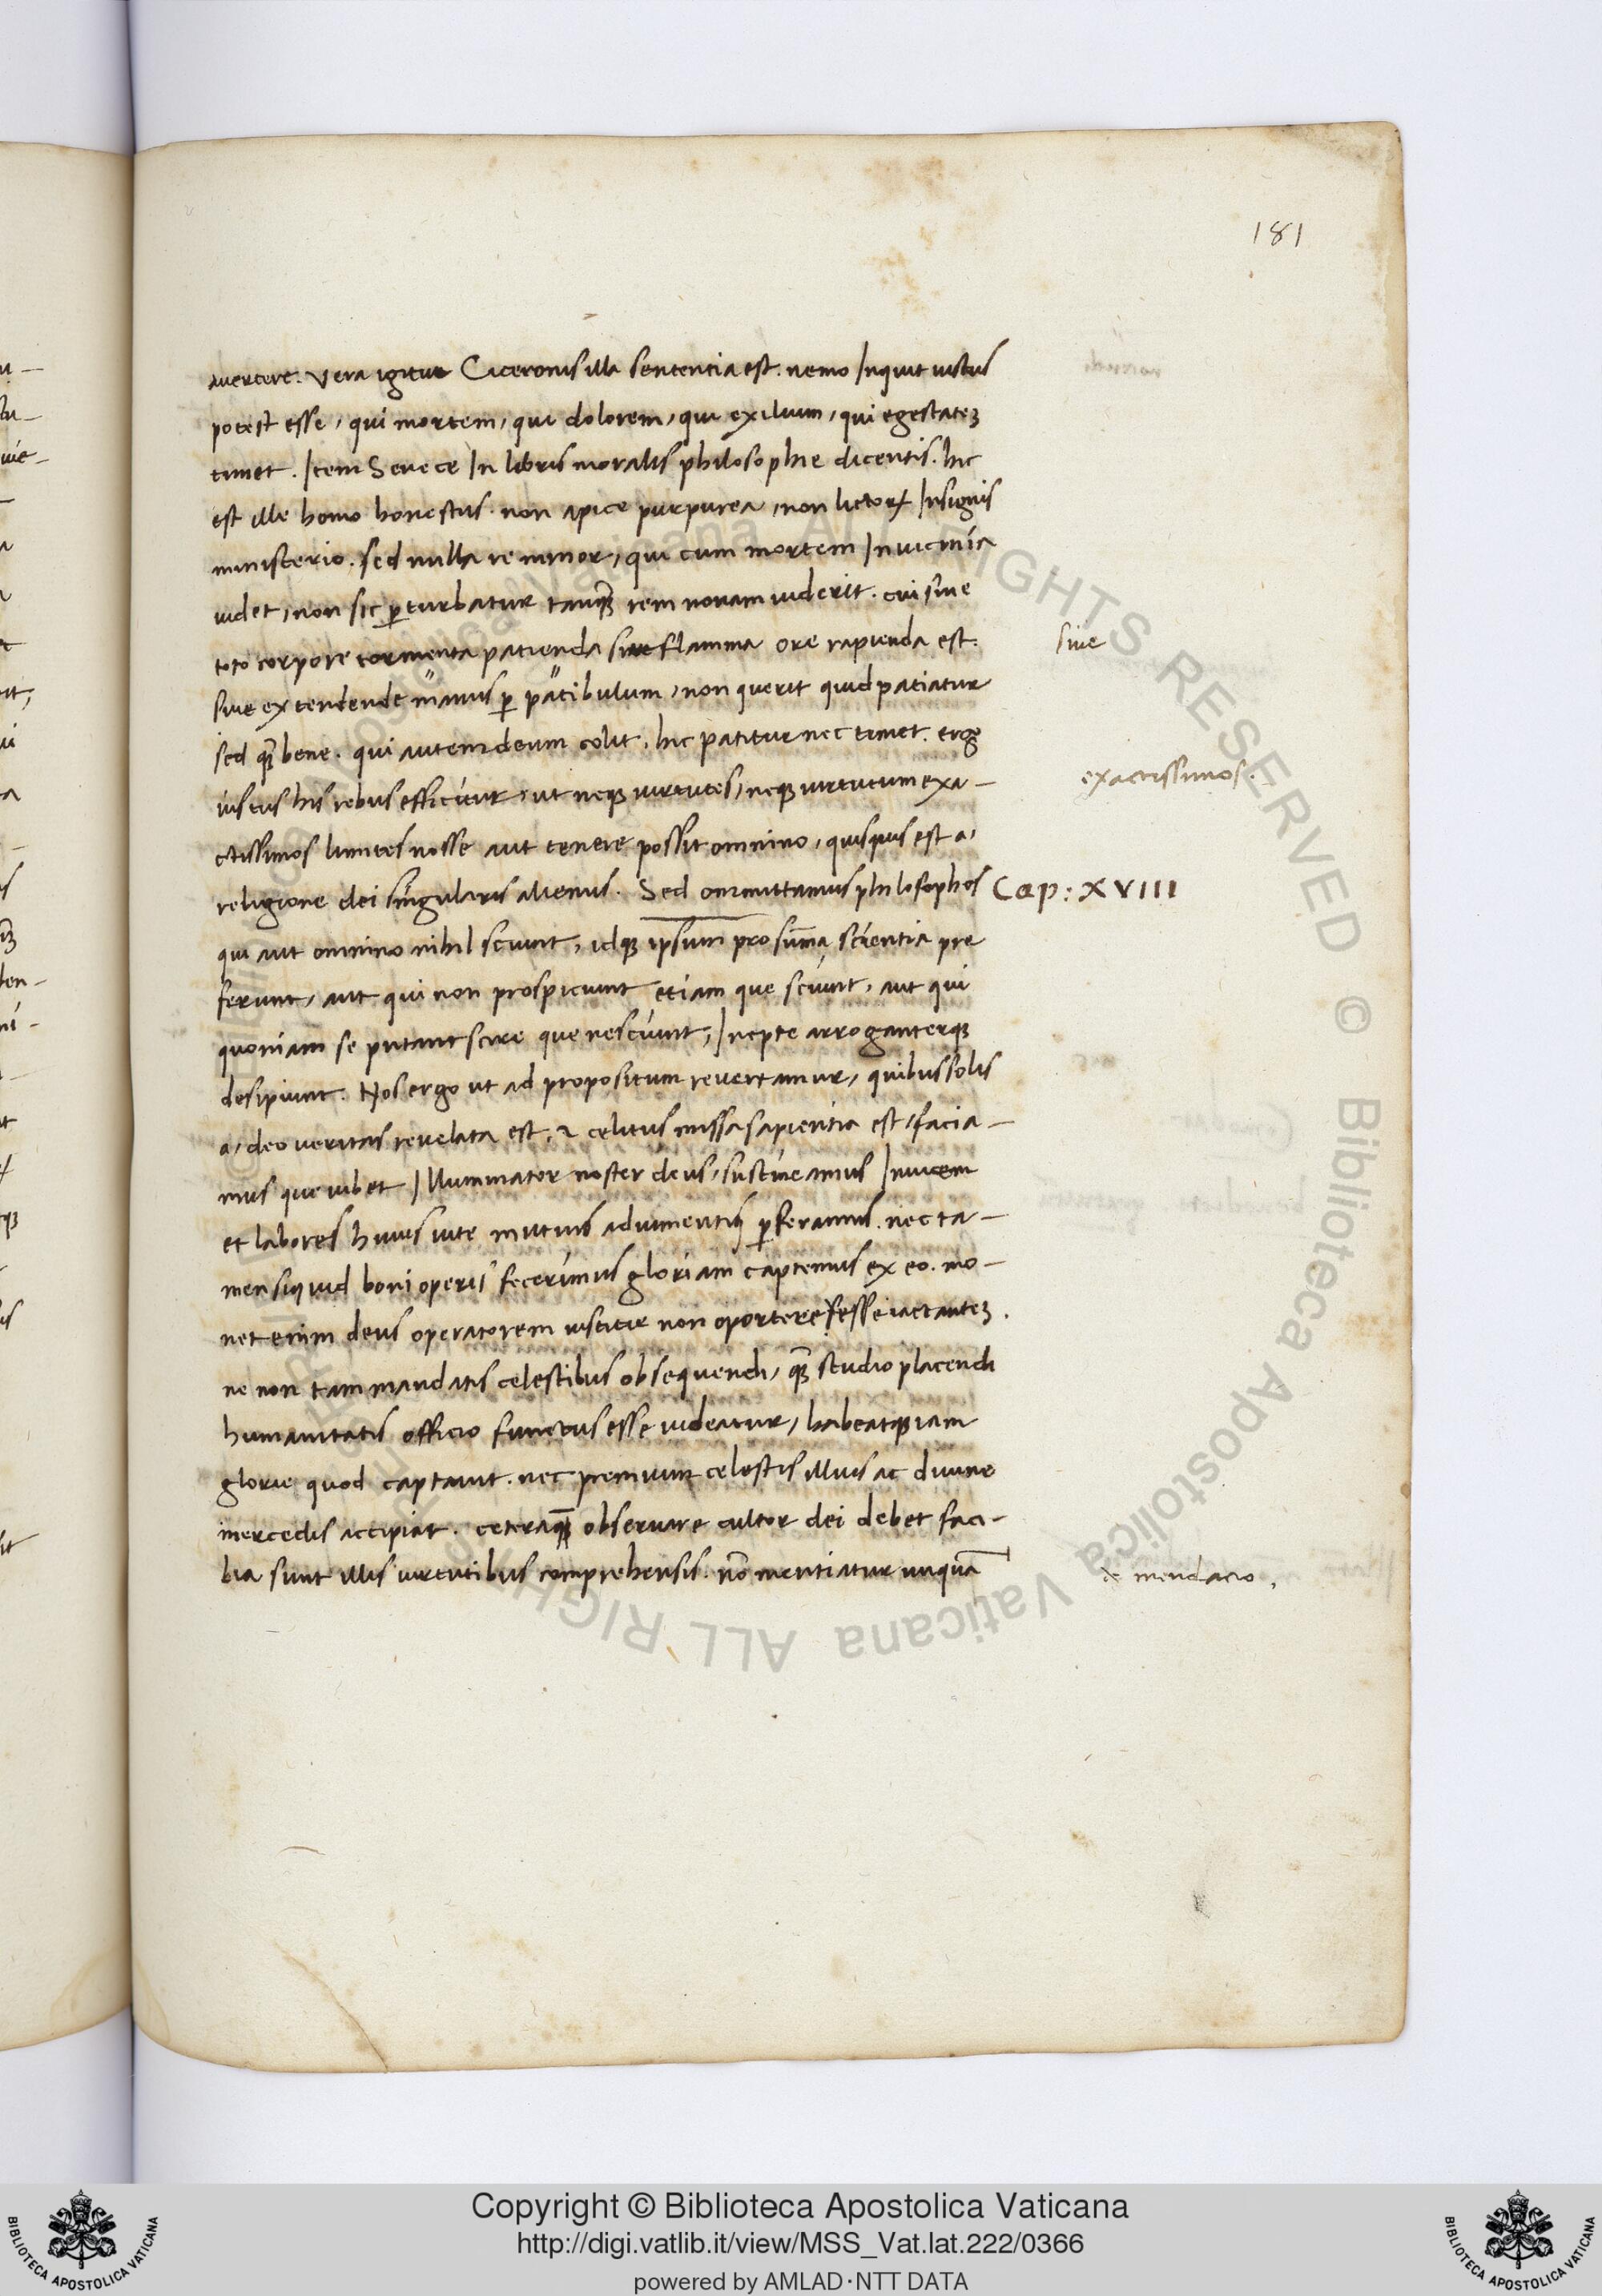 181
auertere. Vera igitur Ciceronis illa sententia est. nemo Inquit iustus
potest esse, qui mortem, qui dolorem, qui exilium, qui egestateȝ
timet. Item Senece In libris moralis philosophie dicentis. hic
est ille homo honestus. non apice purpurea, non lictoꝝ Insignis
ministerio. sed nulla re minor, qui cum mortem In uicinia
uidet, non sic ꝑturbatur tanqȝ rem nouam uiderit. cui siue
toto corpore tormenta patienda siue flamma ore rapienda est.
siue
siue extendende manus ꝑ patibulum, non querit quid patiatur
sed qȝ bene. qui autem deum colit, hic patitur nec timet. ergo
iustus his rebus efficitur, ut neqȝ uirtutes, neqȝ uirtutum exa-
exactissimos.
ctissimos limites nosse aut tenere possit omnino, quisquis est a,
religione dei singularis alienus. Sed ommittamus philosophos
Cap: XVIII
qui aut omnino nihil sciunt, idqȝ ipsum pro sūma scientia pre
ferunt, aut qui non prospiciunt etiam que sciunt, aut qui
quoniam se putant scire que nesciunt, Inepte arroganterqȝ
desipiunt. Nos ergo ut ad propositum reuertamur, quibus solis
a, deo ueritas reuelata est, ⁊ celitus missa sapientia est, facia-
mus que iubet Illuminator noster deus, sustineamus Inuicem
et labores huius uite mutuis adiumentis ꝑferamus. nec ta-
men siquid boni operis fecerimus gloriam captemus ex eo. mo-
net enim deus operatorem iustitie non oportere esse iactanteȝ.
ne non tam mandatis celestibus obsequendi, qȝ studio placendi
humanitatis officio functus esse uideatur, habeatqȝ iam
glorie quod captauit. nec premium celestis illius ac diuine
mercedis accipiat. cetera qȝ obseruare cultor dei debet faci-
lia sunt illis uirtutibus comprehensis. nō mentiatur unquā
de mendacio.
Copyright © Biblioteca Apostolica Vaticana
http://digi.vatlib.it/view/MSS_Vat.lat.222/0366
powered by AMLAD·NTT DATA